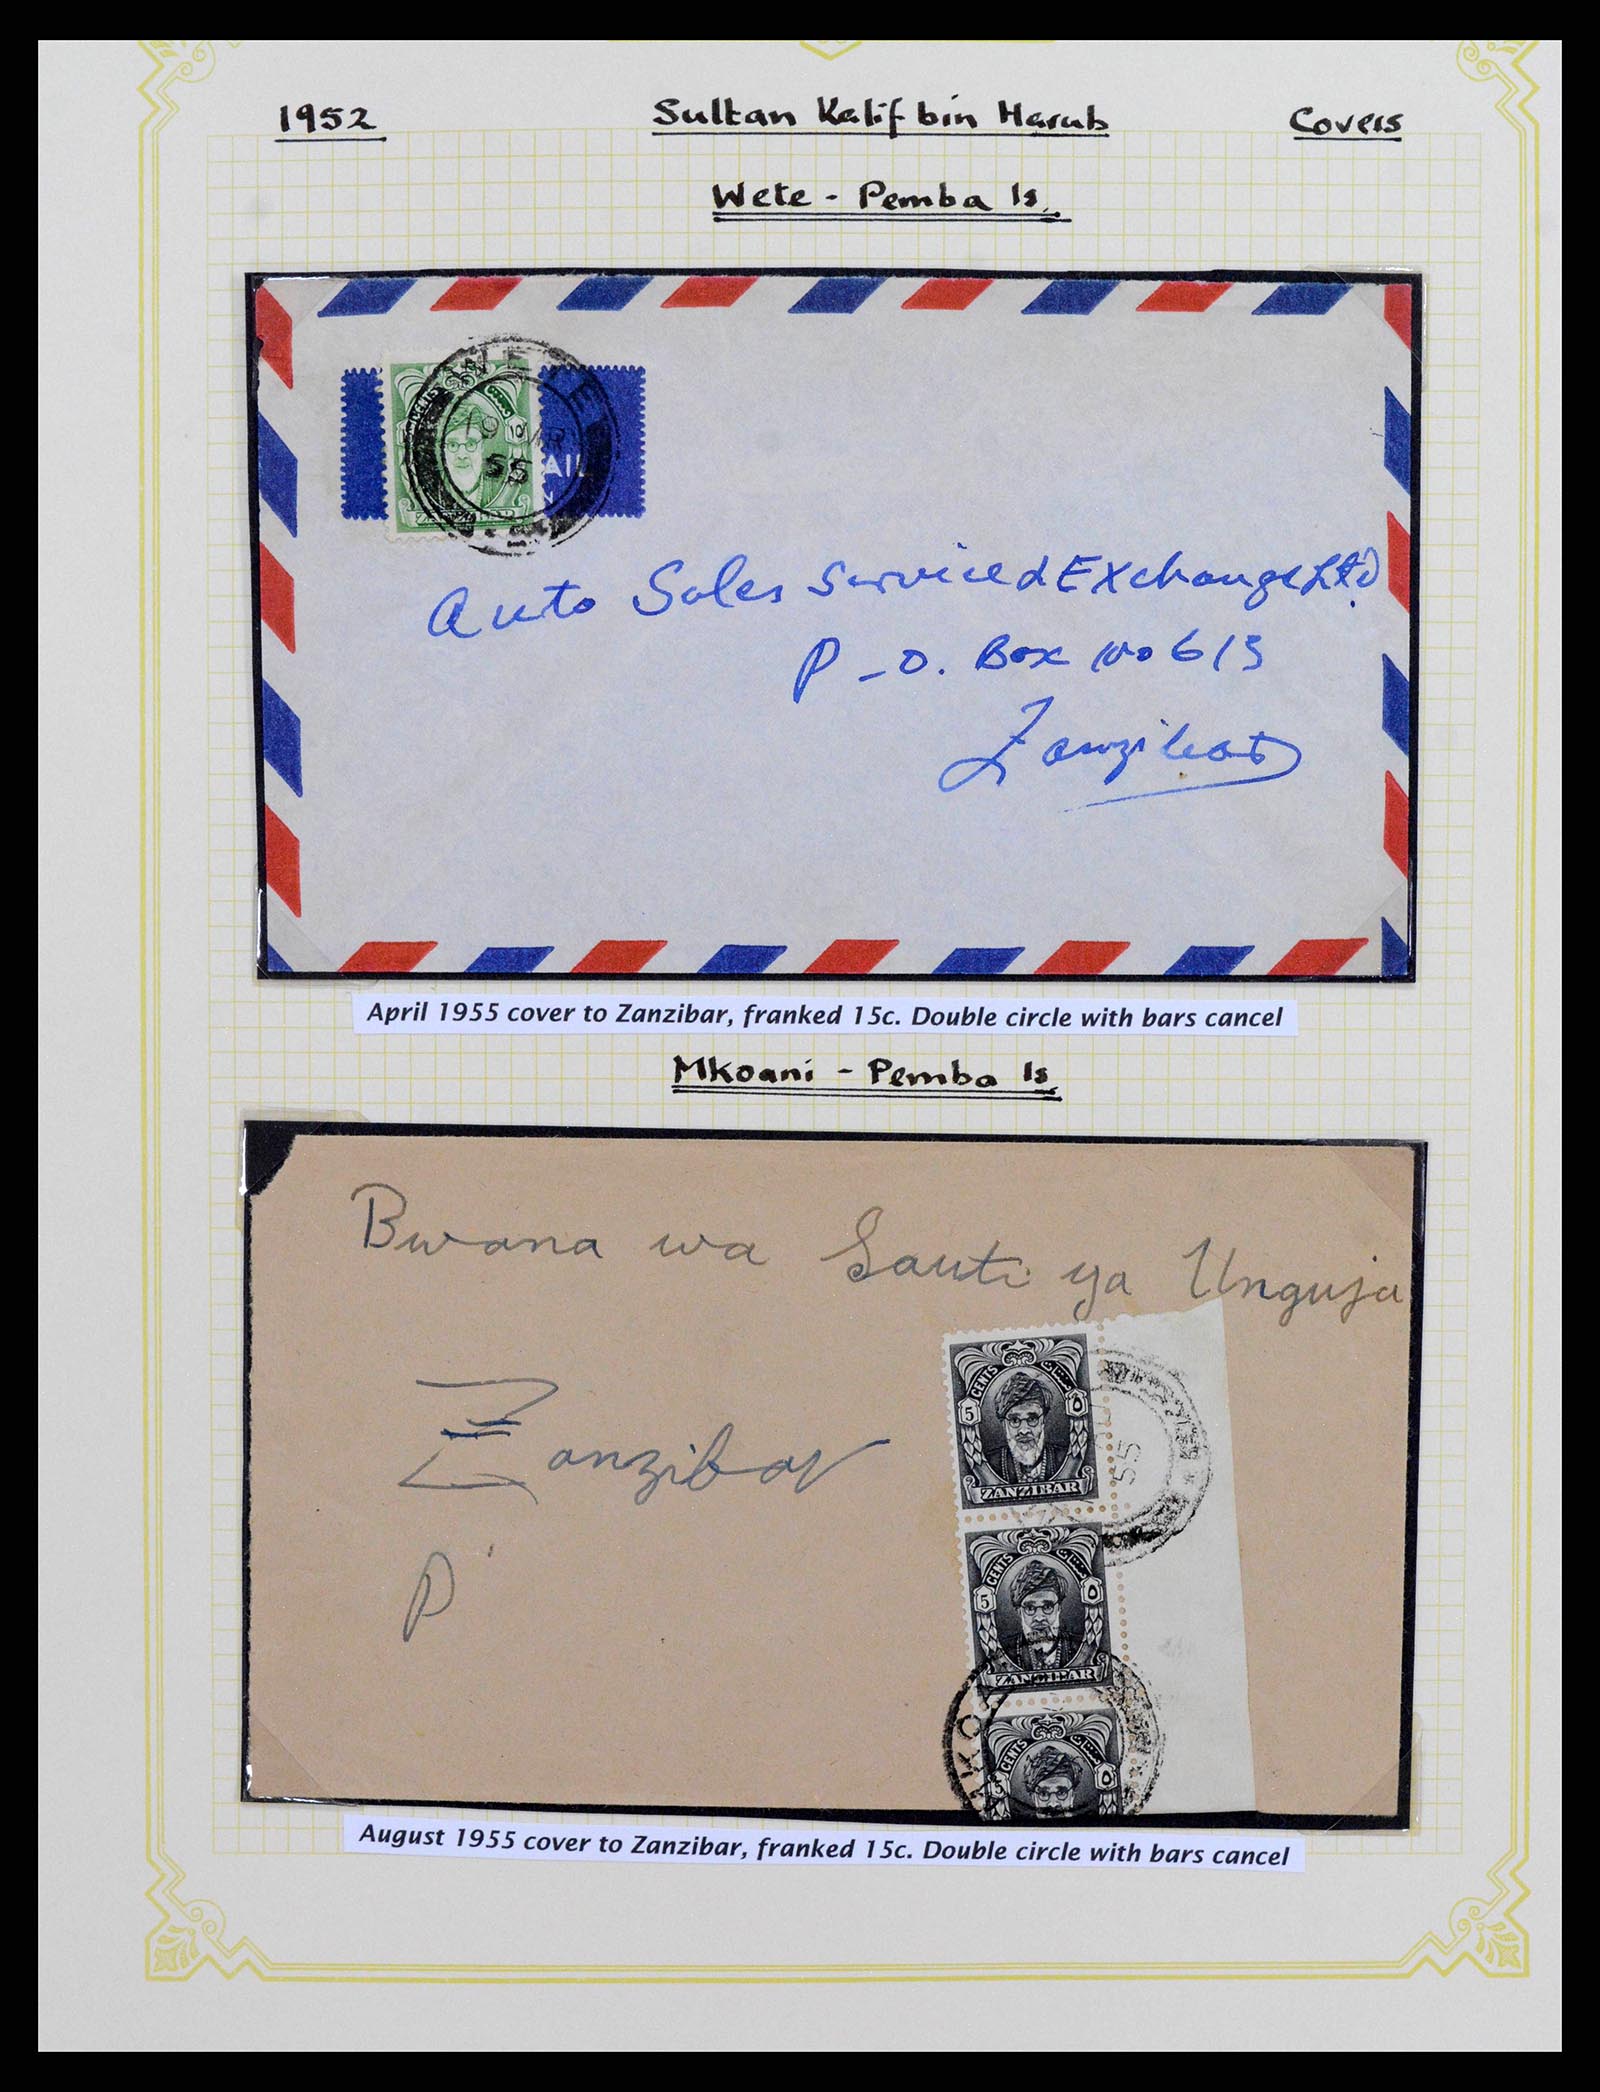 1952 Sultan Kalif bin Harub Covers
Wete - Pemba Is.
WETE
CENTS
19 55
ZANZIBAR
Auto Sales Service & Exchange Ltd
P-O. Box No 613
Zanzibar
April 1955 cover to Zanzibar, franked 15c. Double circle with bars cancel
Mkoani - Pemba Is
Bwana wa Sauti ya Unguja
Zanzibar
P
CENTS
5 ٥
55
ZANZIBAR
CENTS
5 ٥
ZANZIBAR
MKO
CENTS
5 ٥
August 1955 cover to Zanzibar, franked 15c. Double circle with bars cancel